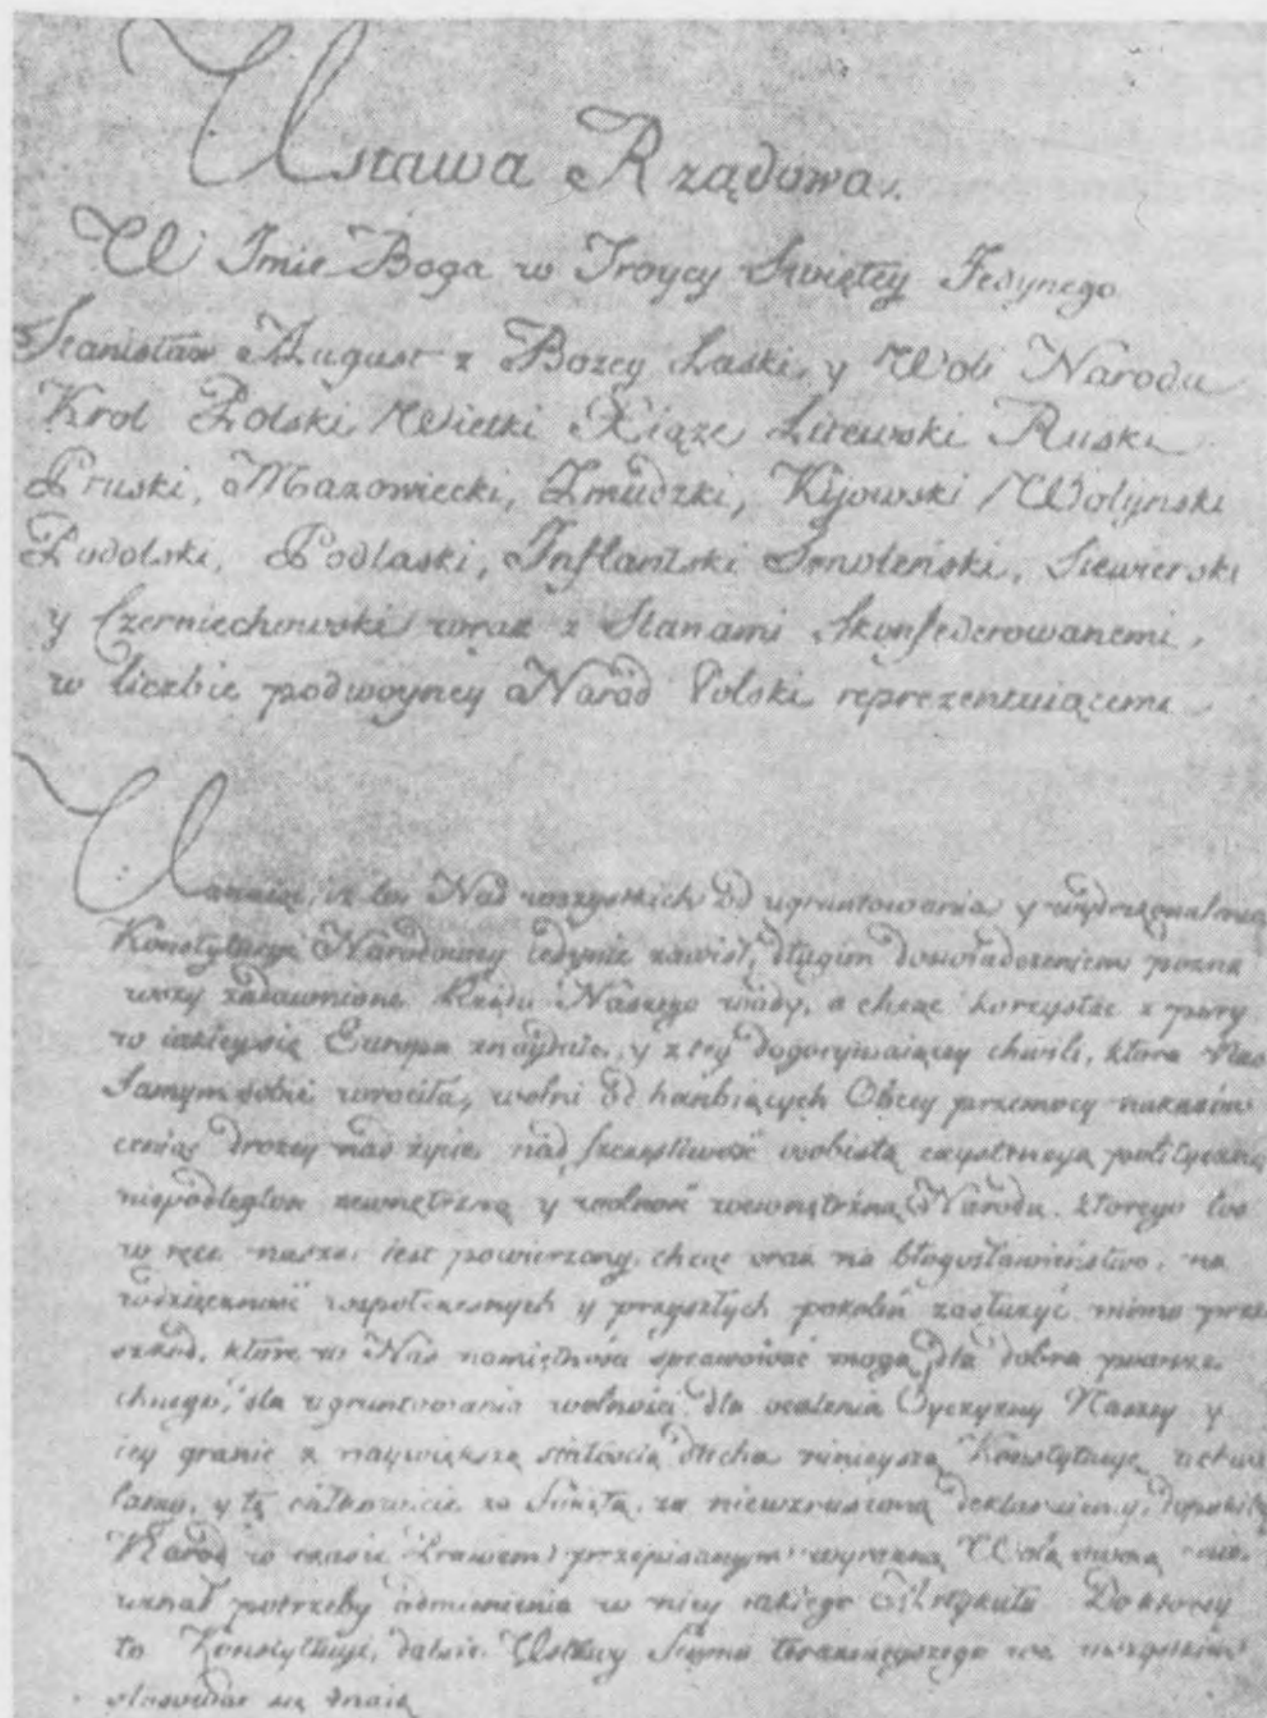 Ustawa Rządowa.
W Imie Boga w Troycy Swiętey Jedynego
Stanisław August z Bozey Łaski y Woli Narodu
Krol Polski Wielki Xiąze Litewski Ruski
Pruski, Mazowiecki, Zmudzki, Kijowski Wolynski
Podolski, Podlaski, Inflantski Smoleński, Siewierski
y Czerniechowski wraz z Stanami Skonfederowanemi,
w liczbie podwoyney Naród Polski reprezentuiącemi
Uznaiąc, iz los Nas wszystkich od ugruntowania y wydoskonalenia
Konstytucyi Narodowey iedynie zawisł, długim doswiadczeniem pozna
wszy zadawnione Rządu Naszego wady, a chcąc korzystac z pory
w iakiey się Europa znayduie, y z tey dogorywaiącey chwili, ktora Nas
Samym sobie wrociła, wolni od hanbiących Obcey przemocy nakazów
ceniąc drozey nad zycie, nad szczęsliwość osobistą exystencyą polityczną
niepodległość zewnętrzną y wolność wewnętrzną Narodu, ktorego los
w ręce nasze iest powierzony, chcąc oraz na błogosławieństwo, na
wdzięczność wspołczesnych y przyszłych pokoleń zasłuzyć, mimo prze
szkód, ktore w Nas namiętności sprawować mogą, dla dobra powsze
chnego, dla ugruntowania wolności, dla ocalenia Oyczyzny Naszey y
iey granic z naywiększą stałością ducha ninieyszą Konstytucyę uchwa
lamy, y tę całkowicie za Swiętą, za niewzruszoną deklaruiemy, dopokiby
Naród w czasie Prawem przepisanym wyrazną Wolą swoią nie
uznał potrzeby odmienienia w niey iakiego Artykułu Do ktorey
to Konstytucyi, dalsze Ustawy Seymu teraznieyszego we wszystkim
stosować się maią